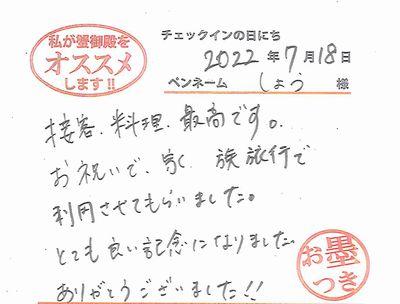 私が蟹御殿を
オススメ
します!!
チェックインの日にち
2022年7月18日
ペンネーム しょう 様
接客、料理、最高です。
お祝いで、家族旅行で
利用させてもらいました。
とても良い記念になりました。
ありがとうございました!!
お墨つき